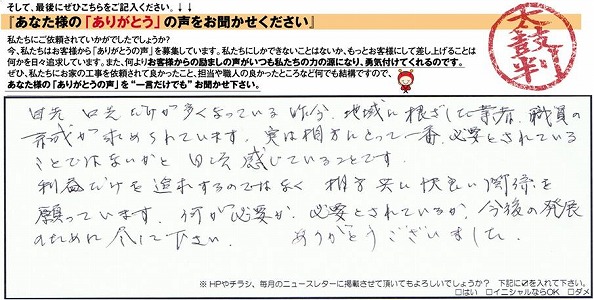 そして、最後にぜひこちらをご記入ください。↓↓
『あなた様の「ありがとう」の声をお聞かせください』
私たちにご依頼されていかがでしたでしょうか?
今、私たちはお客様から「ありがとうの声」を募集しています。私たちにしかできないことはないか、もっとお客様にして差し上げることは
何かを日々追求しています。また、何よりお客様からの励ましの声がいつも私たちの力の源になり、勇気付けてくれるのです。
ぜひ、私たちにお家の工事を依頼されて良かったこと、担当や職人の良かったところなど何でも結構ですので、
あなた様の「ありがとうの声」を“一言だけでも”お聞かせ下さい。
太鼓判
口先だけが多くなっている昨今、地域に根ざした業者、職員の
育成が求められています。実は相方にとって一番必要とされている
ことではないかと日頃感じていることです。
利益だけを追求するのではなく 相方共に快良い関係を
願っています。何が必要か、必要とされているか、今後の発展
のために尽して下さい。 ありがとうございました。
※HPやチラシ、毎月のニュースレターに掲載させて頂いてもよろしいでしょうか? 下記に☑を入れて下さい。
□はい □イニシャルならOK □ダメ